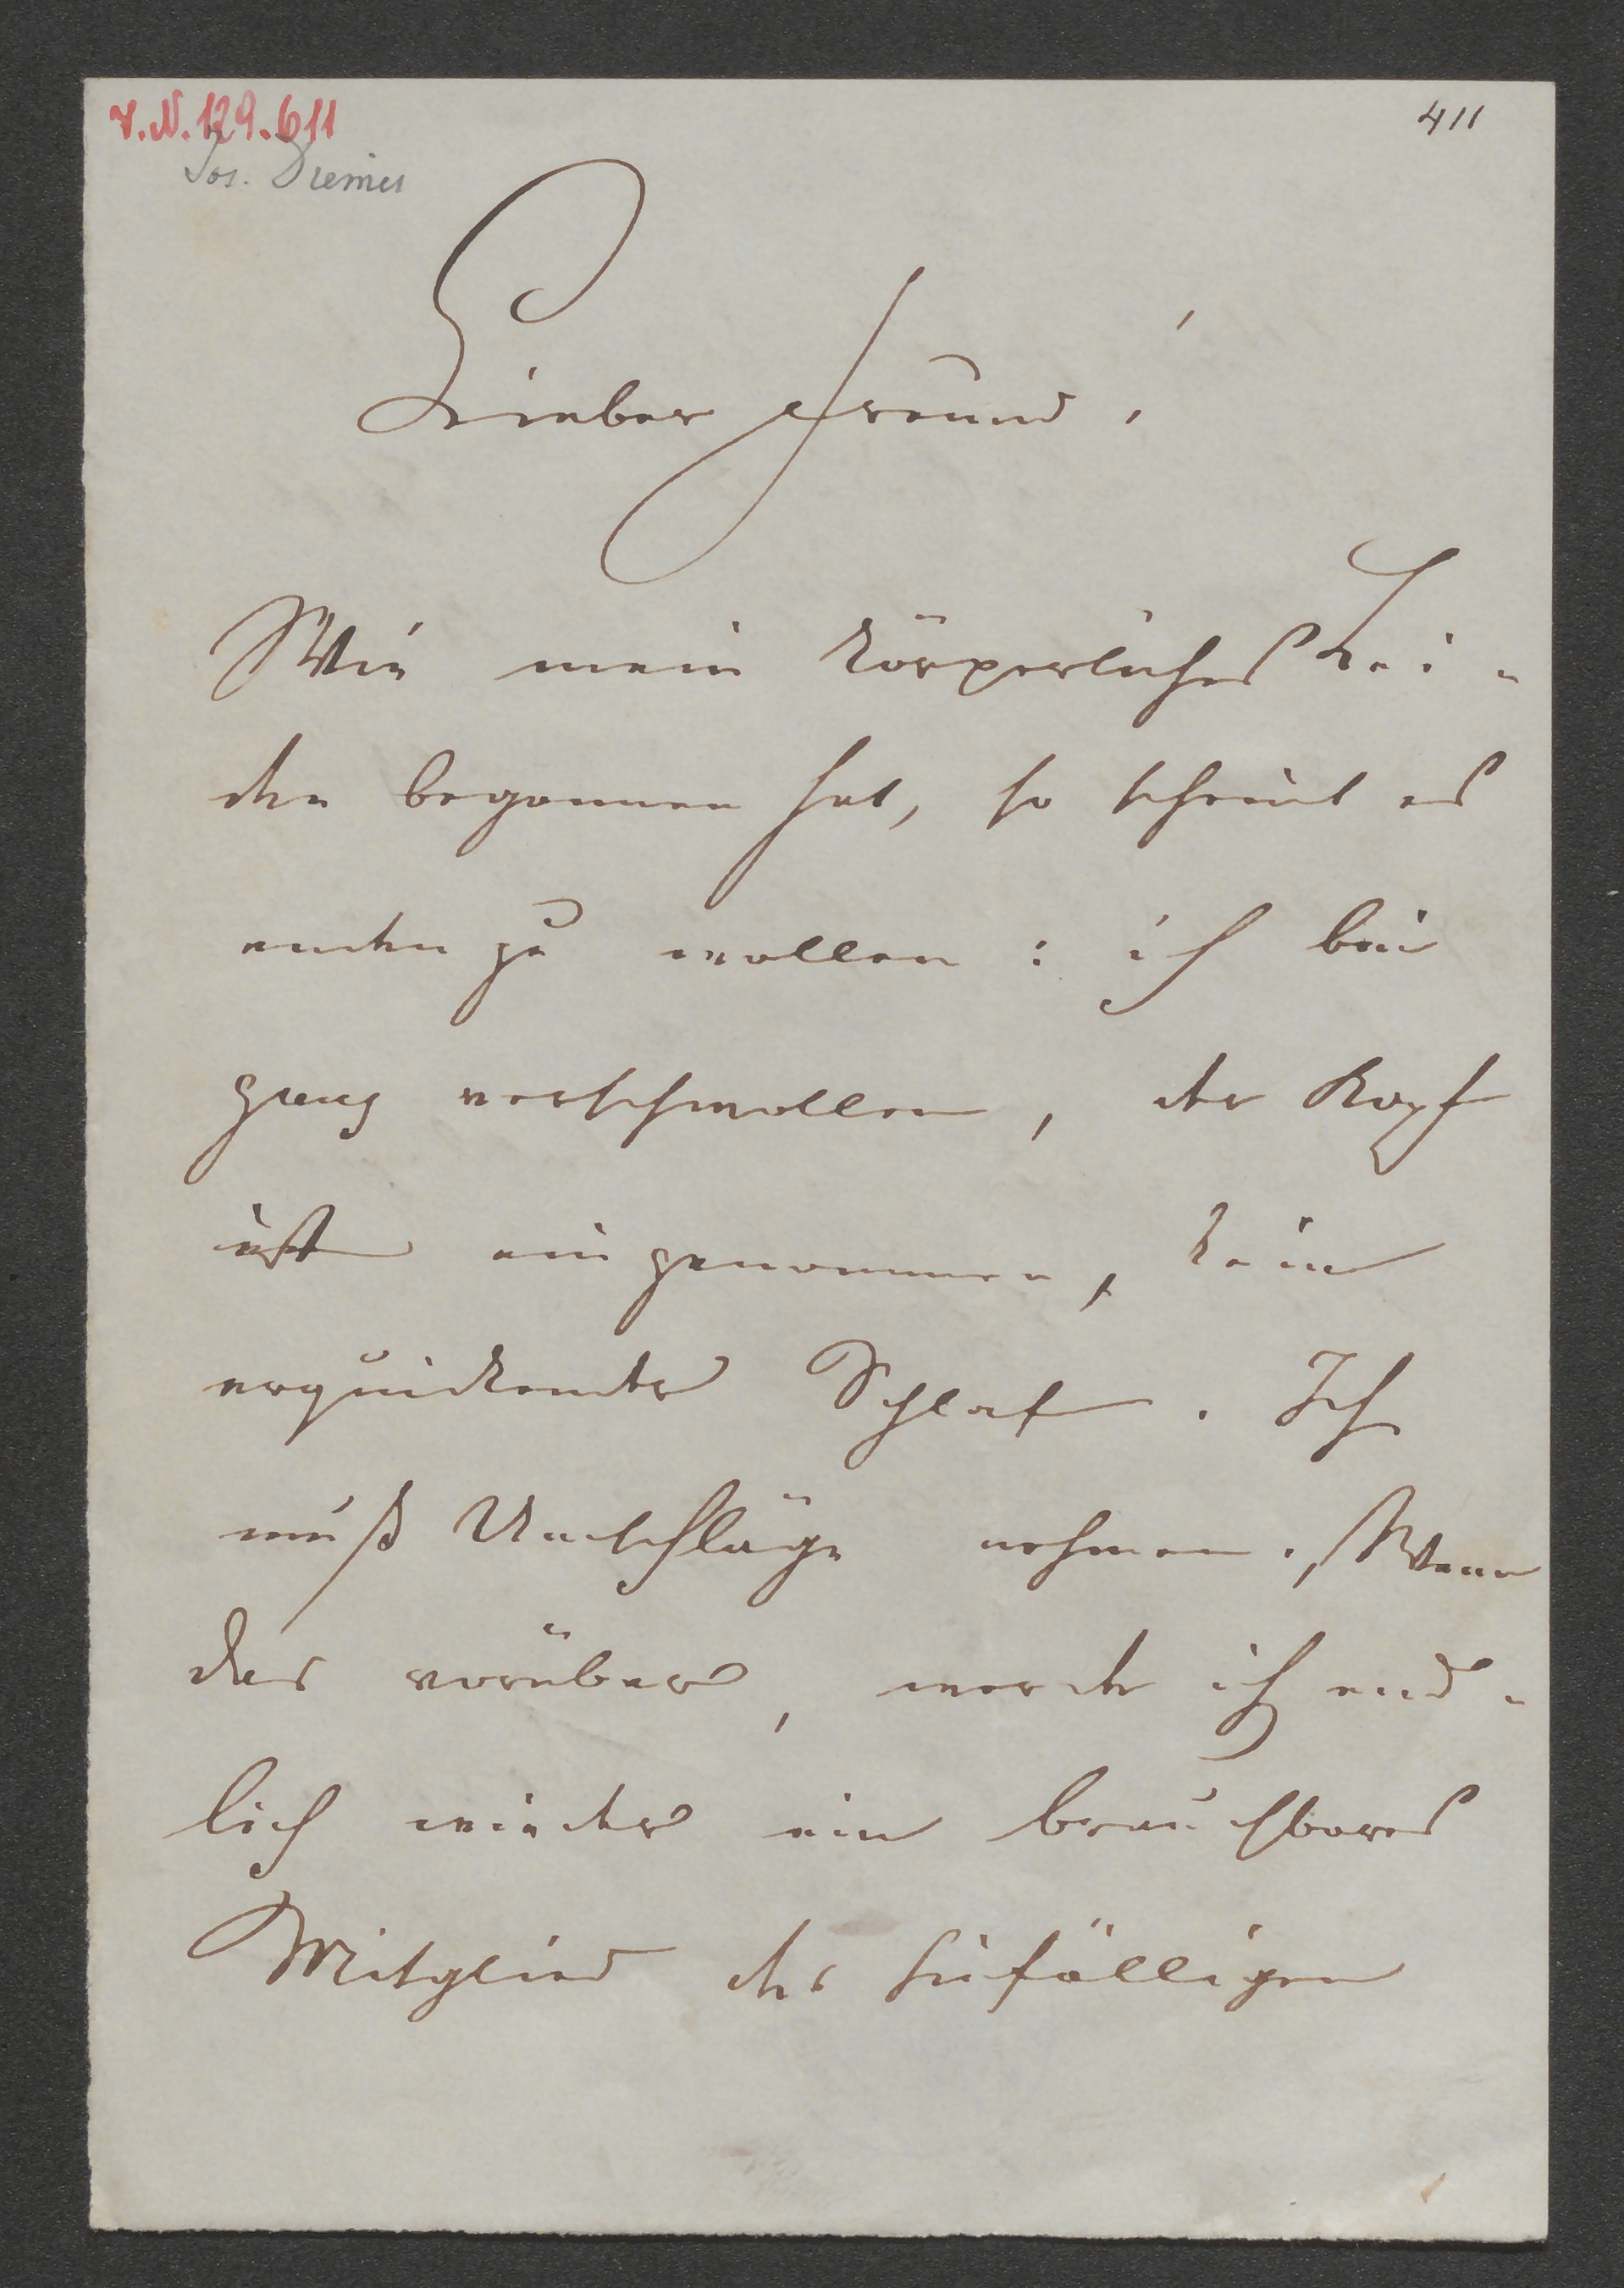 V.N. 129.611
411
Jos. Diemer
Lieber Freund!
Wie mein körperliches Lei-
den begonnen hat, so scheint es
enden zu wollen: ich bin
ganz verschwollen, der Kopf
ist eingenommen, kein
erquickender Schlaf. Ich
muß Umschläge nehmen. Wenn
das vorüber, werde ich end-
lich wieder ein brauchbares
Mitglied der hinfälligen